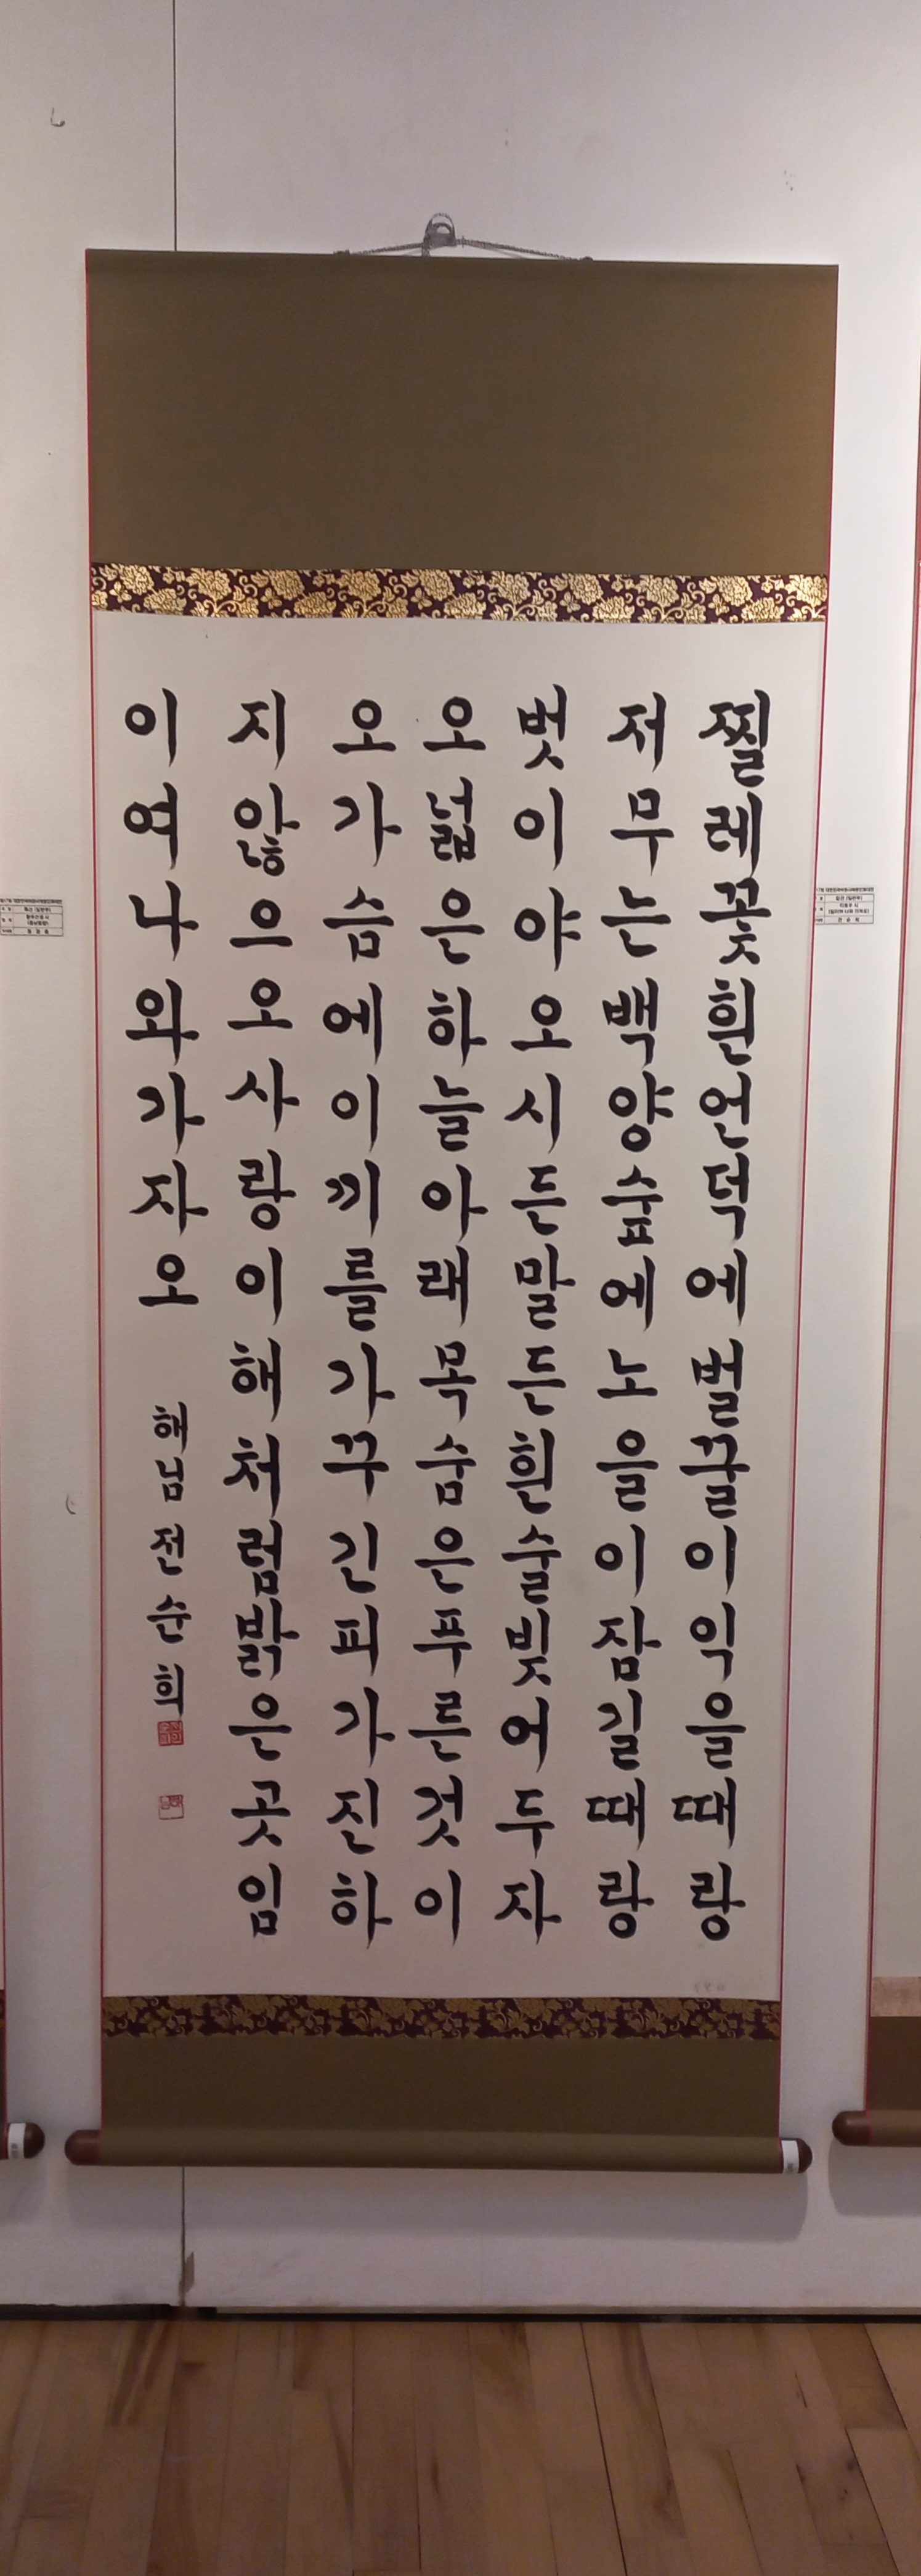 찔레꽃흰언덕에벌꿀이익을때랑
저무는백양숲에노을이잠길때랑
벗이야오시든말든흰술빚어두자
오넓은하늘아래목숨은푸른것이
오가슴에이끼를가꾸긴피가진하
지않으오사랑이해처럼밝은곳임
이여나와가자오
해님전순희